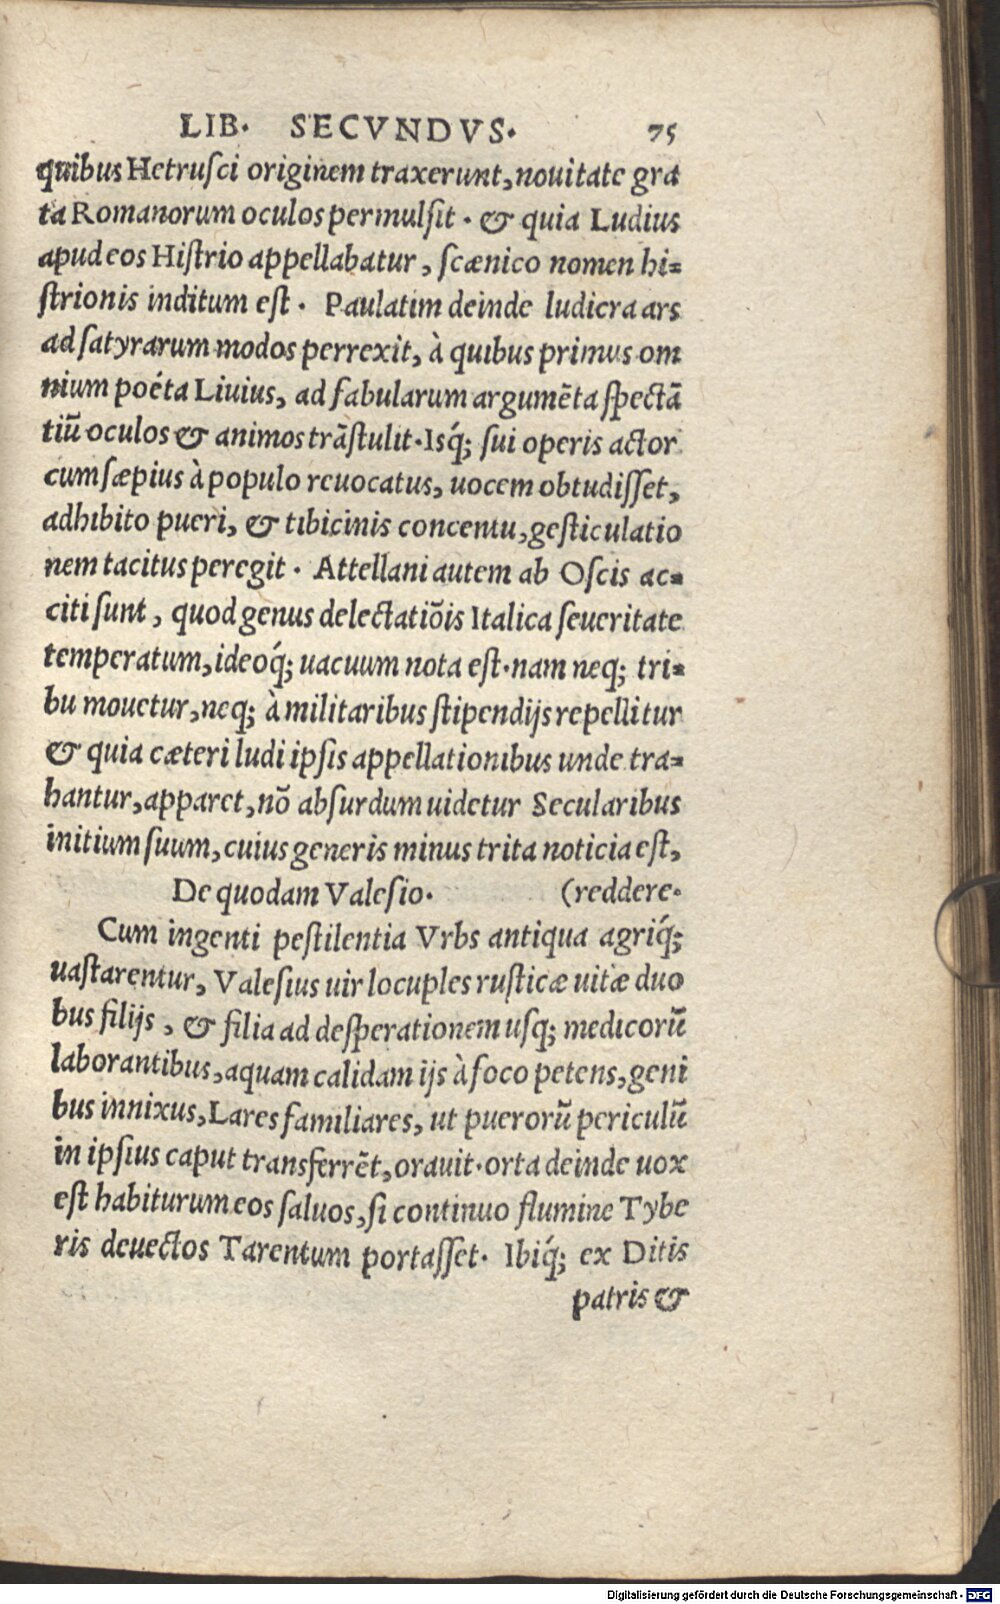 LIB. SECVNDVS. 75
quibus Hetruſci originem traxerunt, nouitate gra
ta Romanorum oculos permulſit. & quia Ludius
apud eos Hiſtrio appellabatur, ſcænico nomen hi=
ſtrionis inditum eſt. Paulatim deinde ludicra ars
ad ſatyrarum modos perrexit, à quibus primus om
nium poéta Liuius, ad fabularum argumẽta ſpectã
tiũ oculos & animos trãſtulit. Isq́; ſui operis actor
cum ſæpius à populo reuocatus, uocem obtudiſſet,
adhibito pueri, & tibicinis concentu, geſticulatio
nem tacitus peregit. Attellani autem ab Oſcis ac=
citi ſunt, quod genus delectatiõis Italica ſeueritate
temperatum, ideoq́; uacuum nota eſt. nam neq; tri=
bu mouetur, neq; à militaribus ſtipendijs repellitur
& quia cæteri ludi ipſis appellationibus unde tra=
hantur, apparet, nõ abſurdum uidetur Secularibus
initium ſuum, cuius generis minus trita noticia eſt,
De quodam Valeſio. (reddere.
Cum ingenti peſtilentia Vrbs antiqua agriq́;
uaſtarentur, Valeſius uir locuples ruſticæ uitæ duo
bus filijs, & filia ad deſperationem uſq; medicorũ
laborantibus, aquam calidam ijs à foco petens, geni
bus innixus, Lares familiares, ut puerorũ periculũ
in ipſius caput transferrẽt, orauit. orta deinde uox
eſt habiturum eos ſaluos, ſi continuo flumine Tybe
ris deuectos Tarentum portaſſet. Ibiq́; ex Ditis
patris &
Digitalisierung gefördert durch die Deutsche Forschungsgemeinschaft - DFG